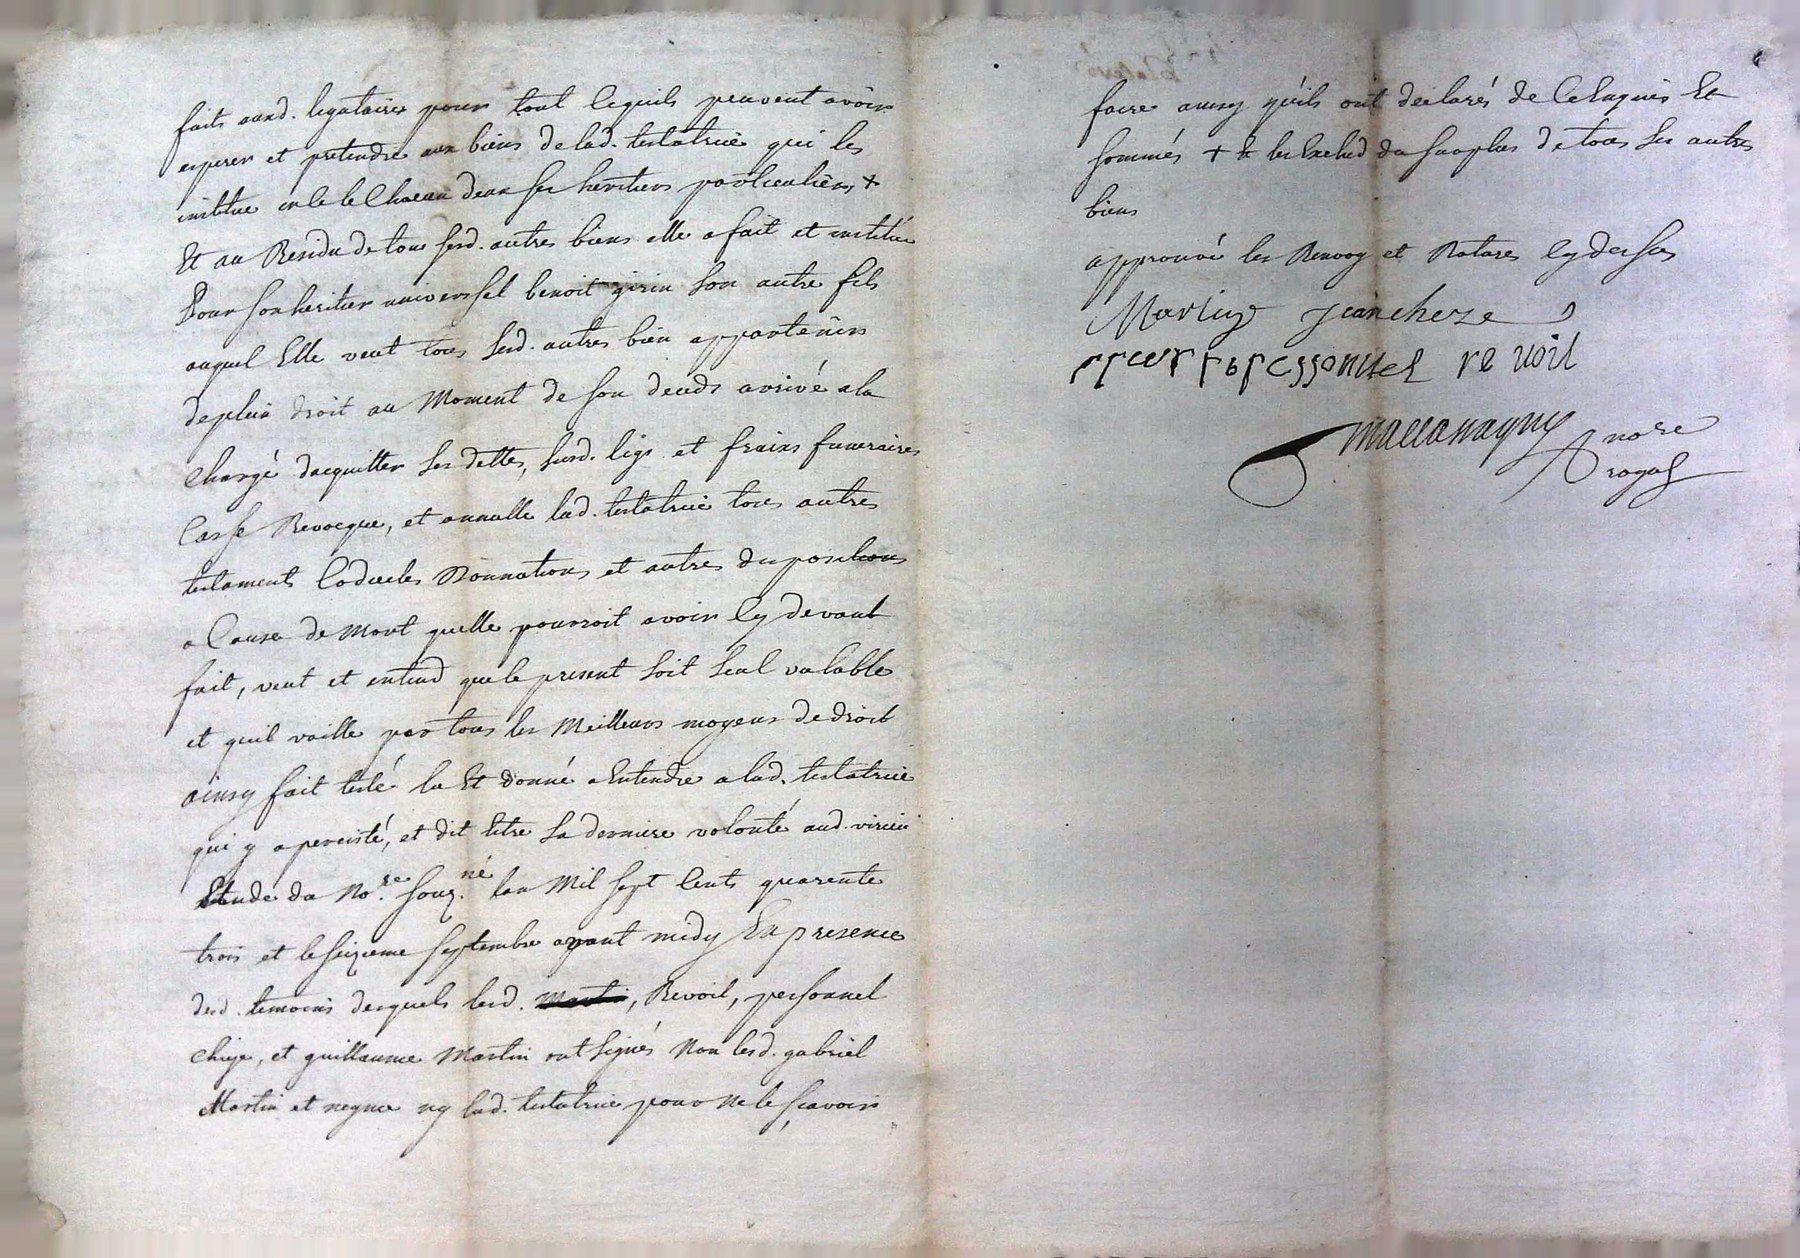 faits auxd. legataires pour tout ce quils peuvent avoir
esperer et pretendre aux biens de lad. testatrice qui les
institue en ce le Chacun deux ses heritiers particuliers +
Et au Residu de tous sesd. autres biens elle a fait et institué
Pour son heritier universel benoit girin son autre fils
auquel Elle veut tous sesd. autres bien appartenir
de plein droit au Moment de son deceds arrivé a la
Charge dacquitter ses dettes, susd. legs et fraix funeraires
Casse Revocque, et annulle lad. testatrice tous autres
testaments Codiceles Donnations et autres dispositions
a Cause de Mort quelle pourroit avoir Cy devant
fait, veut et entend que le present soit seul valable
et quil vaille par tous les Meilleurs moyens de droit
ainsy fait testé lu Et donné a Entendre a lad. testatrice
qui y a percisté, et dit Etre sa derniere volonté aud. viricu
Etude du No.re souz.né lan Mil sept Cents quarente
trois et le seizieme septembre avant midy En presence
desd. temoins desquels lesd. Martin, Revoil, personnel
cheze, et guillaume Martin ont signés Non lesd. gabriel
Martin et neyme ny lad. testatrice pour ne le sçavoir
faire ainsy quils ont declarés de Ce Enquis Et
sommés + & les Exclud du surplus de tous ses autres
biens
approuvé les Renvoy et Ratures Cy dessus
Martin jean cheze
personnel revoil
mallanagny no.re
royal